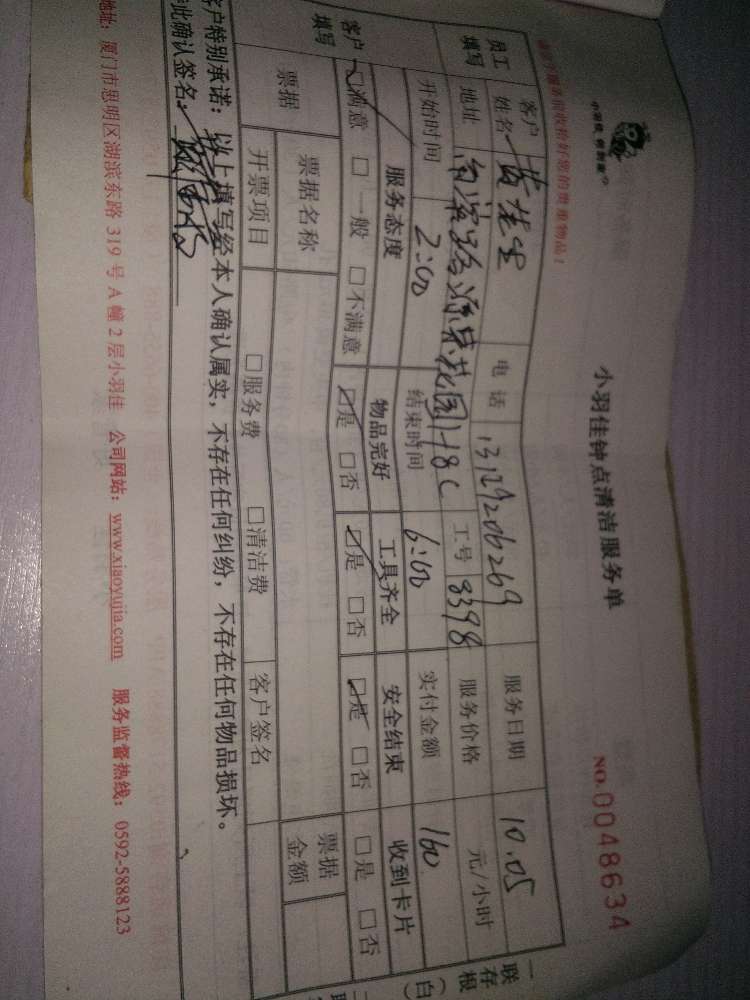 小羽佳钟点清洁服务单
NO.0048634
小羽佳 帮到家
客户姓名 黄先生 电话 13129206269 服务日期 10.05
员工填写 地址 1-18C 工号 8398 服务价格 元/小时
开始时间 2:00 结束时间 6:00 实付金额 160
客户填写 服务态度 物品完好 工具齐全 安全结束 收到卡片
☑满意 □一般 □不满意 ☑是 □否 ☑是 □否 ☑是 □否 □是 □否
票据 票据名称 票据金额
开票项目 □服务费 □清洁费 客户签名
客户特别承诺：以上填写经本人确认属实，不存在任何纠纷，不存在任何物品损坏。
此确认签名：
地址：厦门市思明区湖滨东路 319 号 A 幢 2 层小羽佳 公司网站：www.xiaoyujia.com 服务监督热线：0592-5888123
一联存根（白